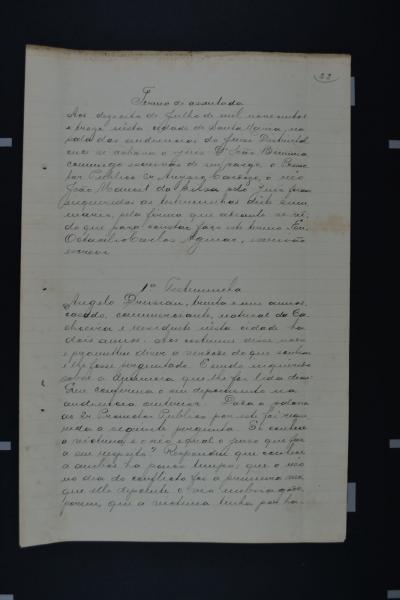 22
Termo de assentada
Aos dezoito de Julho de mil novecentos
e treze nesta cidade de Santa Maria, na
sala das audiencias do Juizo Districtal
onde se achava o Juiz Dr. João
commigo escrivão de seu cargo, o Promo
tor Publico Dr. o réo
João Manoel da Silva pelo Juiz foram
inqueridas as testemunhas deste sum
mario, pela forma que adiante se vê;
do que para constar faço este termo. Eu,
Octacilio Carlos Aguiar, escrivão
escrevi
1ª Testemunha
Angelo trinta e um annos,
casado, commerciante, natural da Ca
choeira e residente nesta cidade ha
dois annos. Aos costumes disse nada
e prometteu dizer a verdade do que soubesse
e lhe fosse perguntado. E sendo inquirido
sobre a denuncia que lhe foi lida disse:
Que confirma o seu depoimento na
audiencia anterior. Dada a palavra
ao Dr. Promotor Publico por este foi reque
rida a seguinte pergunta. Se conhece
a victima e o réo e qual o juizo que faz
a seu respeito? Respondeu que conhece
a ambos ha pouco tempo; que o réo
no dia do conflicto foi a primeira vez
que elle depoente o viu embriagado,
porem, que a victima tinha por ha-